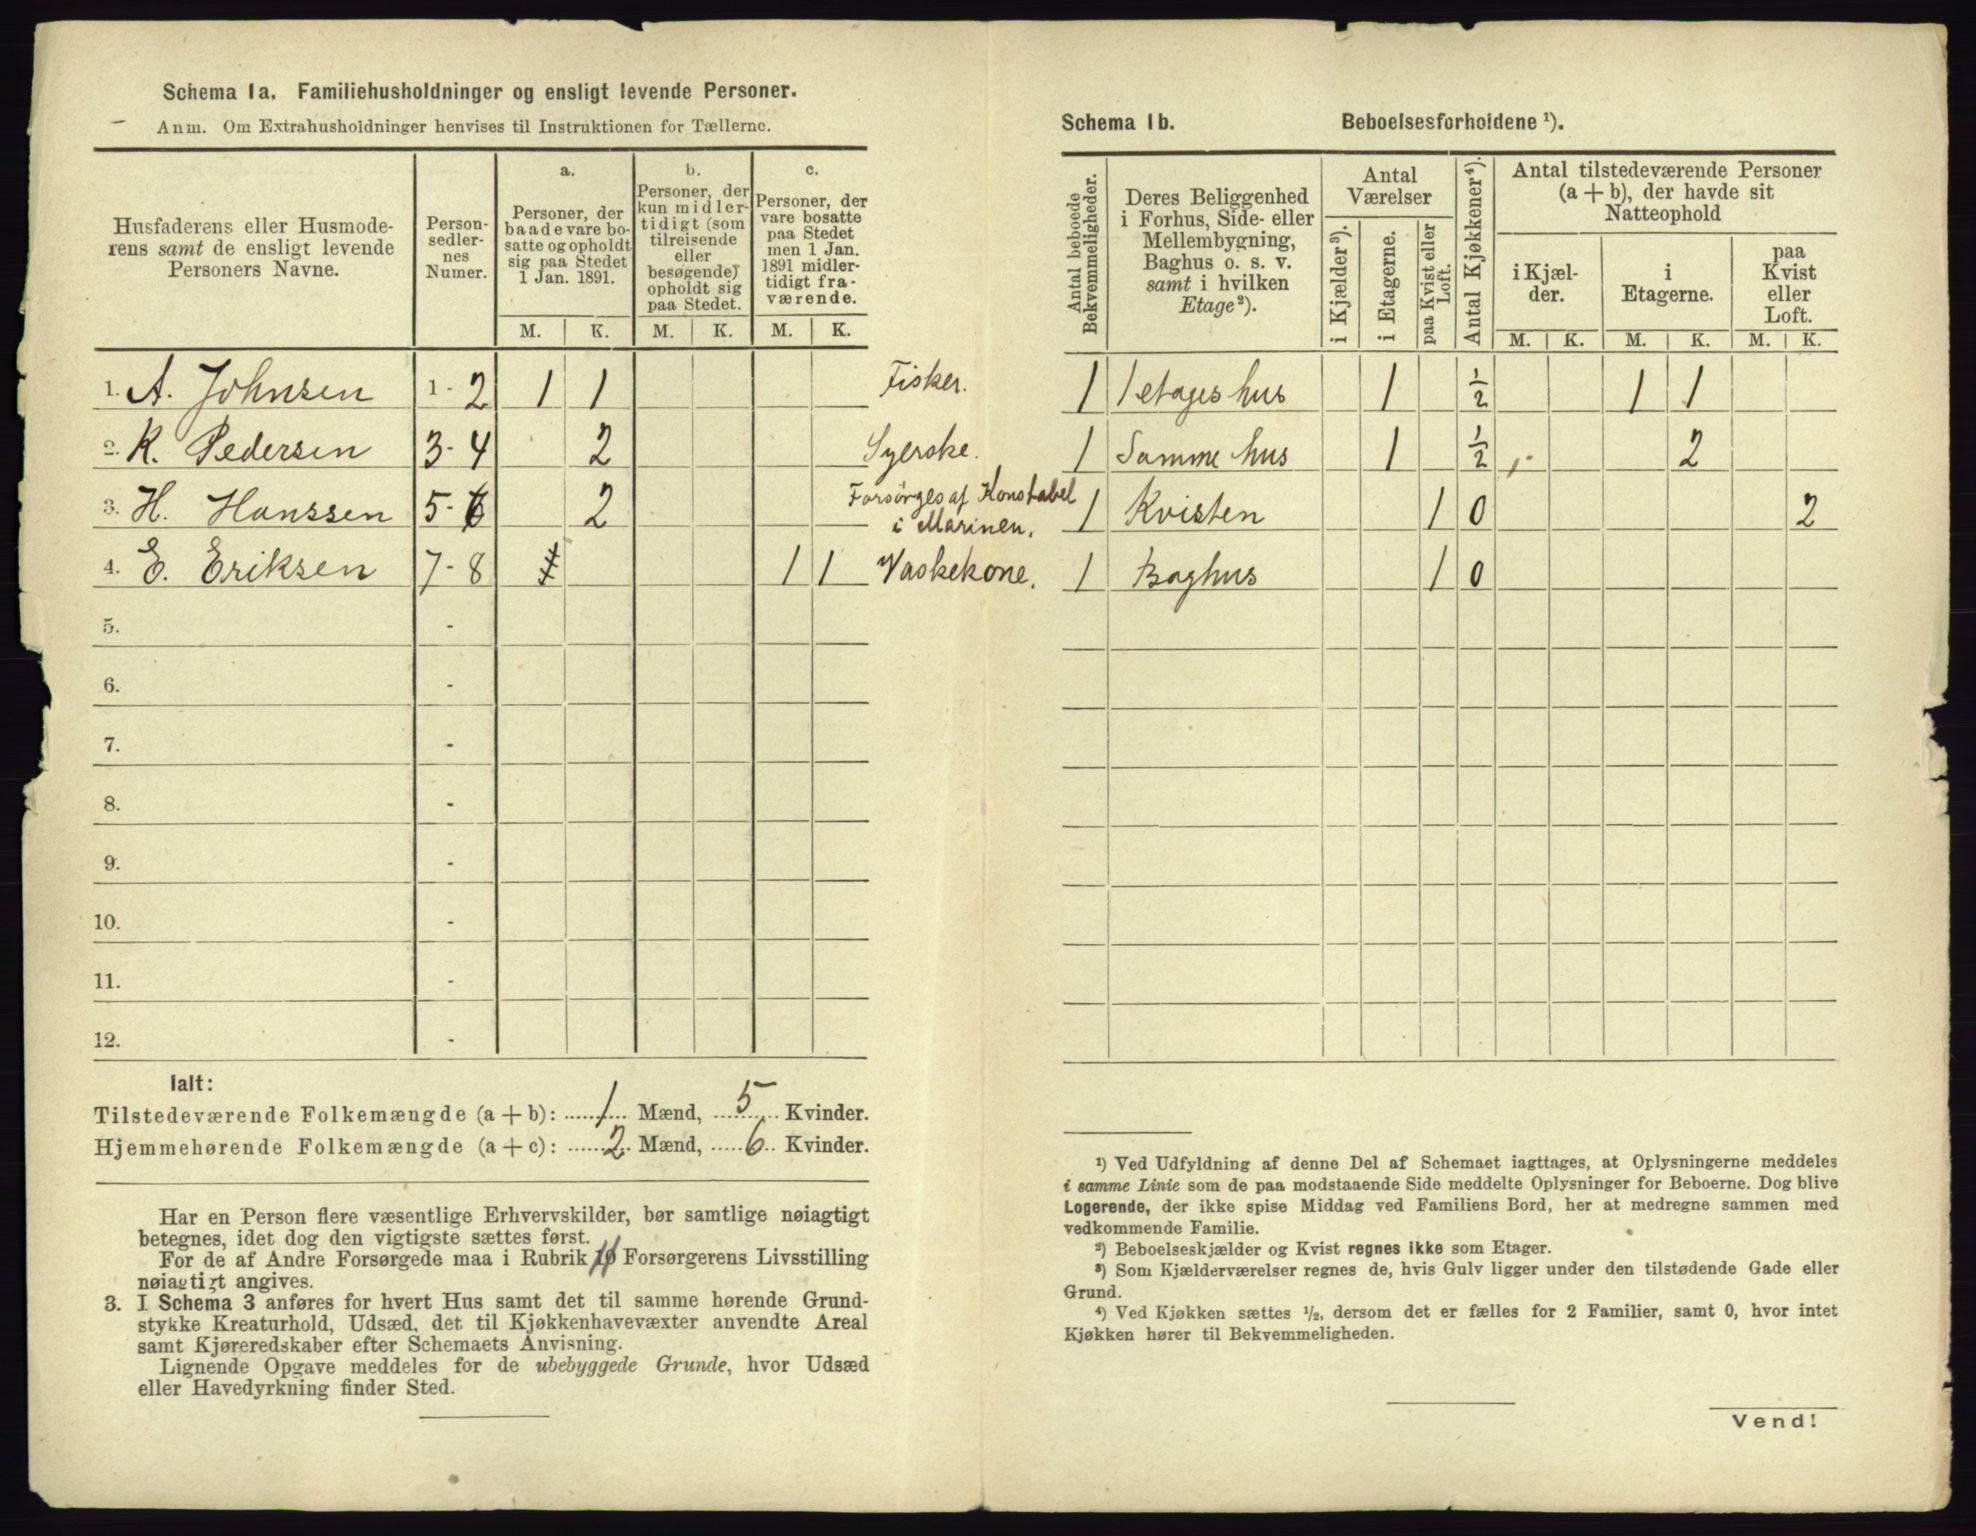 Schema 1a. Familiehusholdninger og ensligt levende Personer.
Anm. Om Extrahusholdninger henvises til Instruktionen for Tællerne.
Husfaderens eller Husmode-
rens samt de ensligt levende
Personers Navne.
Person-
sedler-
nes
Numer.
a.
Personer, der
baade vare bo-
satte og opholdt
sig paa Stedet
1 Jan. 1891.
b.
Personer, der
kun midler-
tidigt (som
tilreisende
eller
besøgende)
opholdt sig
paa Stedet.
c.
Personer, der
vare bosatte
paa Stedet
men 1 Jan.
1891 midler-
tidigt fra-
værende.
M. K. M. K. M. K.
1. A. Johnsen 1-2 1 1 Fisker.
2. K. Pedersen 3-4 2 Syerske.
3. H. Hanssen 5-6 2 Forsørges af Konstabel
i Marinen.
4. E. Eriksen 7-8 1 1 Vaskekone.
5. -
6. -
7. -
8. -
9. -
10. -
11. -
12. -
Ialt:
Tilstedeværende Folkemængde (a + b): 1 Mænd, 5 Kvinder.
Hjemmehørende Folkemængde (a + c): 2 Mænd, 6 Kvinder.
Har en Person flere væsentlige Erhvervskilder, bør samtlige nøiagtigt
betegnes, idet dog den vigtigste sættes først.
For de af Andre Forsørgede maa i Rubrik 11 Forsørgerens Livsstilling
nøiagtigt angives.
3. I Schema 3 anføres for hvert Hus samt det til samme hørende Grund-
stykke Kreaturhold, Udsæd, det til Kjøkkenhavevæxter anvendte Areal
samt Kjøreredskaber efter Schemaets Anvisning.
Lignende Opgave meddeles for de ubebyggede Grunde, hvor Udsæd
eller Havedyrkning finder Sted.
Schema 1b. Beboelsesforholdene ¹).
Antal beboede
Bekvemmeligheder.
Deres Beliggenhed
i Forhus, Side- eller
Mellembygning,
Baghus o. s. v.
samt i hvilken
Etage²).
Antal
Værelser
i Kjælder³).
i Etagerne.
paa Kvist eller
Loft.
Antal Kjøkkener⁴).
Antal tilstedeværende Personer
(a + b), der havde sit
Natteophold
i Kjæl-
der.
i
Etagerne.
paa
Kvist
eller
Loft.
M. K. M. K. M. K.
1 1 etages hus 1 ½ 1 1
1 Samme hus 1 ½ 2
1 Kvisten 1 0 2
1 Baghus 1 0
¹) Ved Udfyldning af denne Del af Schemaet iagttages, at Oplysningerne meddeles
i samme Linie som de paa modstaaende Side meddelte Oplysninger for Beboerne. Dog blive
Logerende, der ikke spise Middag ved Familiens Bord, her at medregne sammen med
vedkommende Familie.
²) Beboelseskjælder og Kvist regnes ikke som Etager.
³) Som Kjælderværelser regnes de, hvis Gulv ligger under den tilstødende Gade eller
Grund.
⁴) Ved Kjøkken sættes ½, dersom det er fælles for 2 Familier, samt 0, hvor intet
Kjøkken hører til Bekvemmeligheden.
Vend!